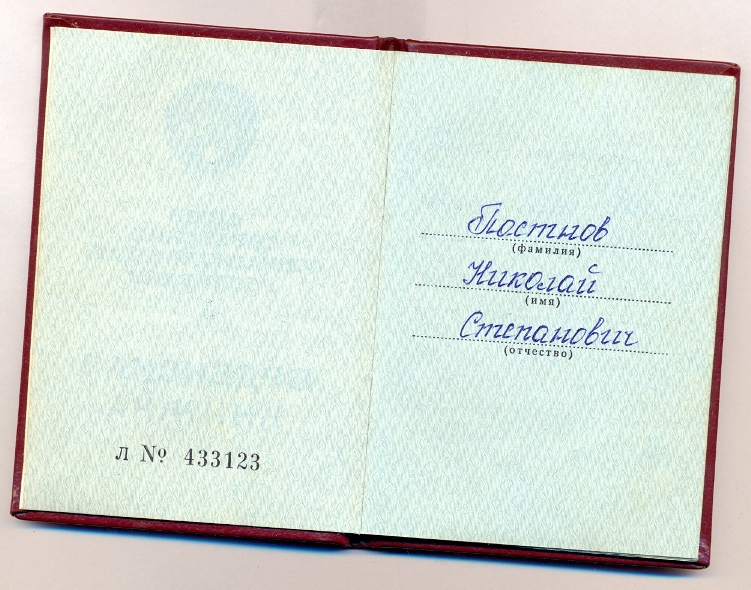 л № 433123
Постнов
(фамилия)
Николай
(имя)
Степанович
(отчество)